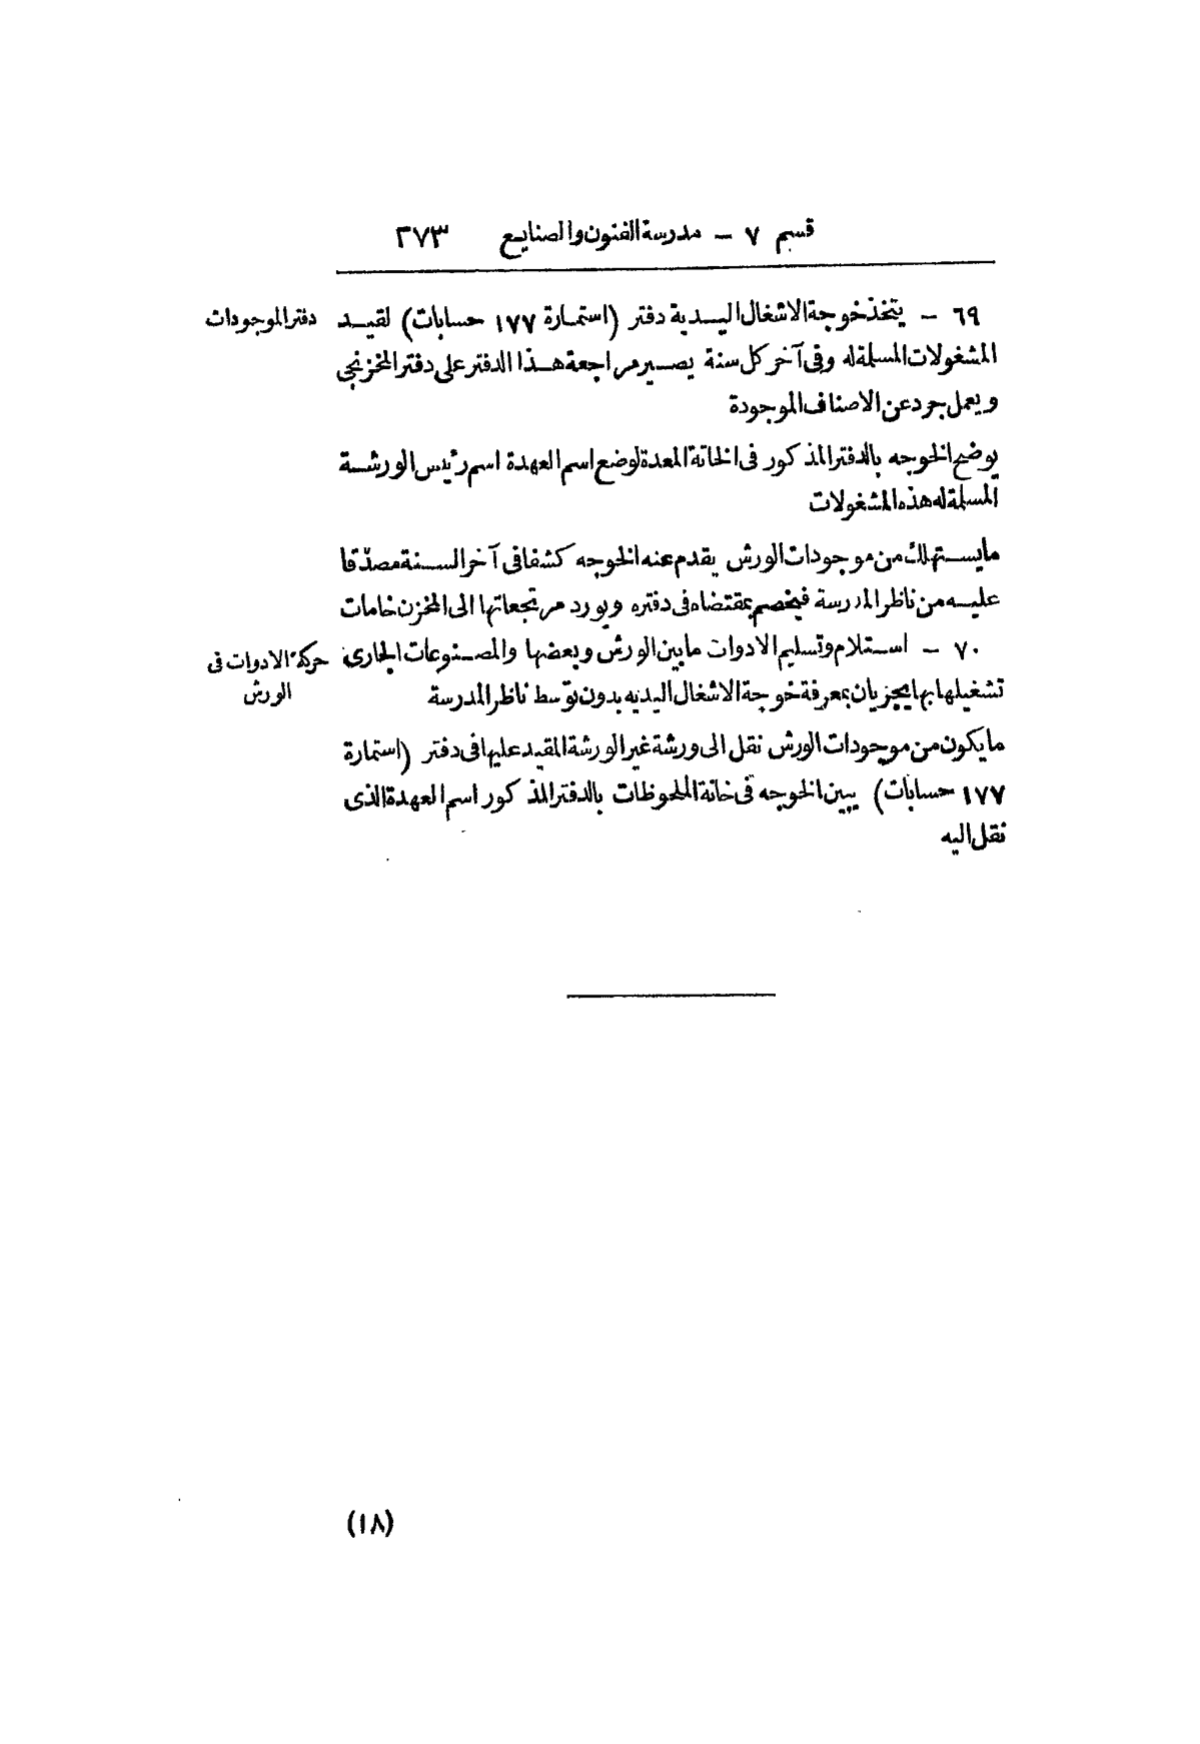 قسم ٧ – مدرسة الفنون والصنايع ٢٧٣
٦٩ – يتخذ خوجة الاشغال اليدية دفتر (استمارة ١٧٧ حسابات) لقيد
دفتر الموجودات
المشغولات المسلمة له وفى آخر كل سنة يصير مراجعة هذا الدفتر على دفتر المخزنجى
ويعمل جرد عن الاصناف الموجودة
يوضح الخوجه بالدفتر المذكور فى الخانة المعدة لوضع اسم العهدة اسم رئيس الورشة
المسلمة له هذه المشغولات
ما يستهلك من موجودات الورش يقدم عنه الخوجه كشفا فى آخر السنة مصدّقا
عليه من ناظر المدرسة فيخصم بمقتضاه فى دفتره ويورد مرتجعاتها الى المخزن خامات
٧٠ – استلام وتسليم الادوات ما بين الورش وبعضها والمصنوعات الجارى
حركة الادوات فى
الورش
تشغيلها بها يجزيان بمعرفة خوجة الاشغال اليديه بدون توسط ناظر المدرسة
ما يكون من موجودات الورش نقل الى ورشة غير الورشة المقيد عليها فى دفتر (استمارة
١٧٧ حسابات) يبين الخوجه فى خانة الملحوظات بالدفتر المذكور اسم العهدة الذى
نقل اليه
(١٨)